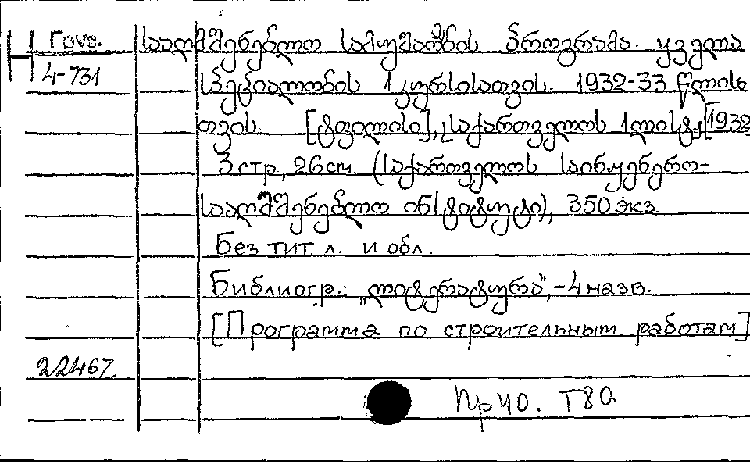 Груз. სააღმშენებლო სამუშაოების პროგრამა. ყველა
4-731 სპეციალობის 1 კურსისათვის. 1932-33 წლის
თვის. [ტფილისი], საქართველოს [1932
3 стр, 26 cm (საქართველოს საინჟენერო-
სააღმშენებლო ინსტიტუტი), 350 экз
Без тит л. и обл.
Библиогр. „ლიტერატურა", - 4 назв.
[Программа по строительным работам]
22467.
Пр 40. Т80